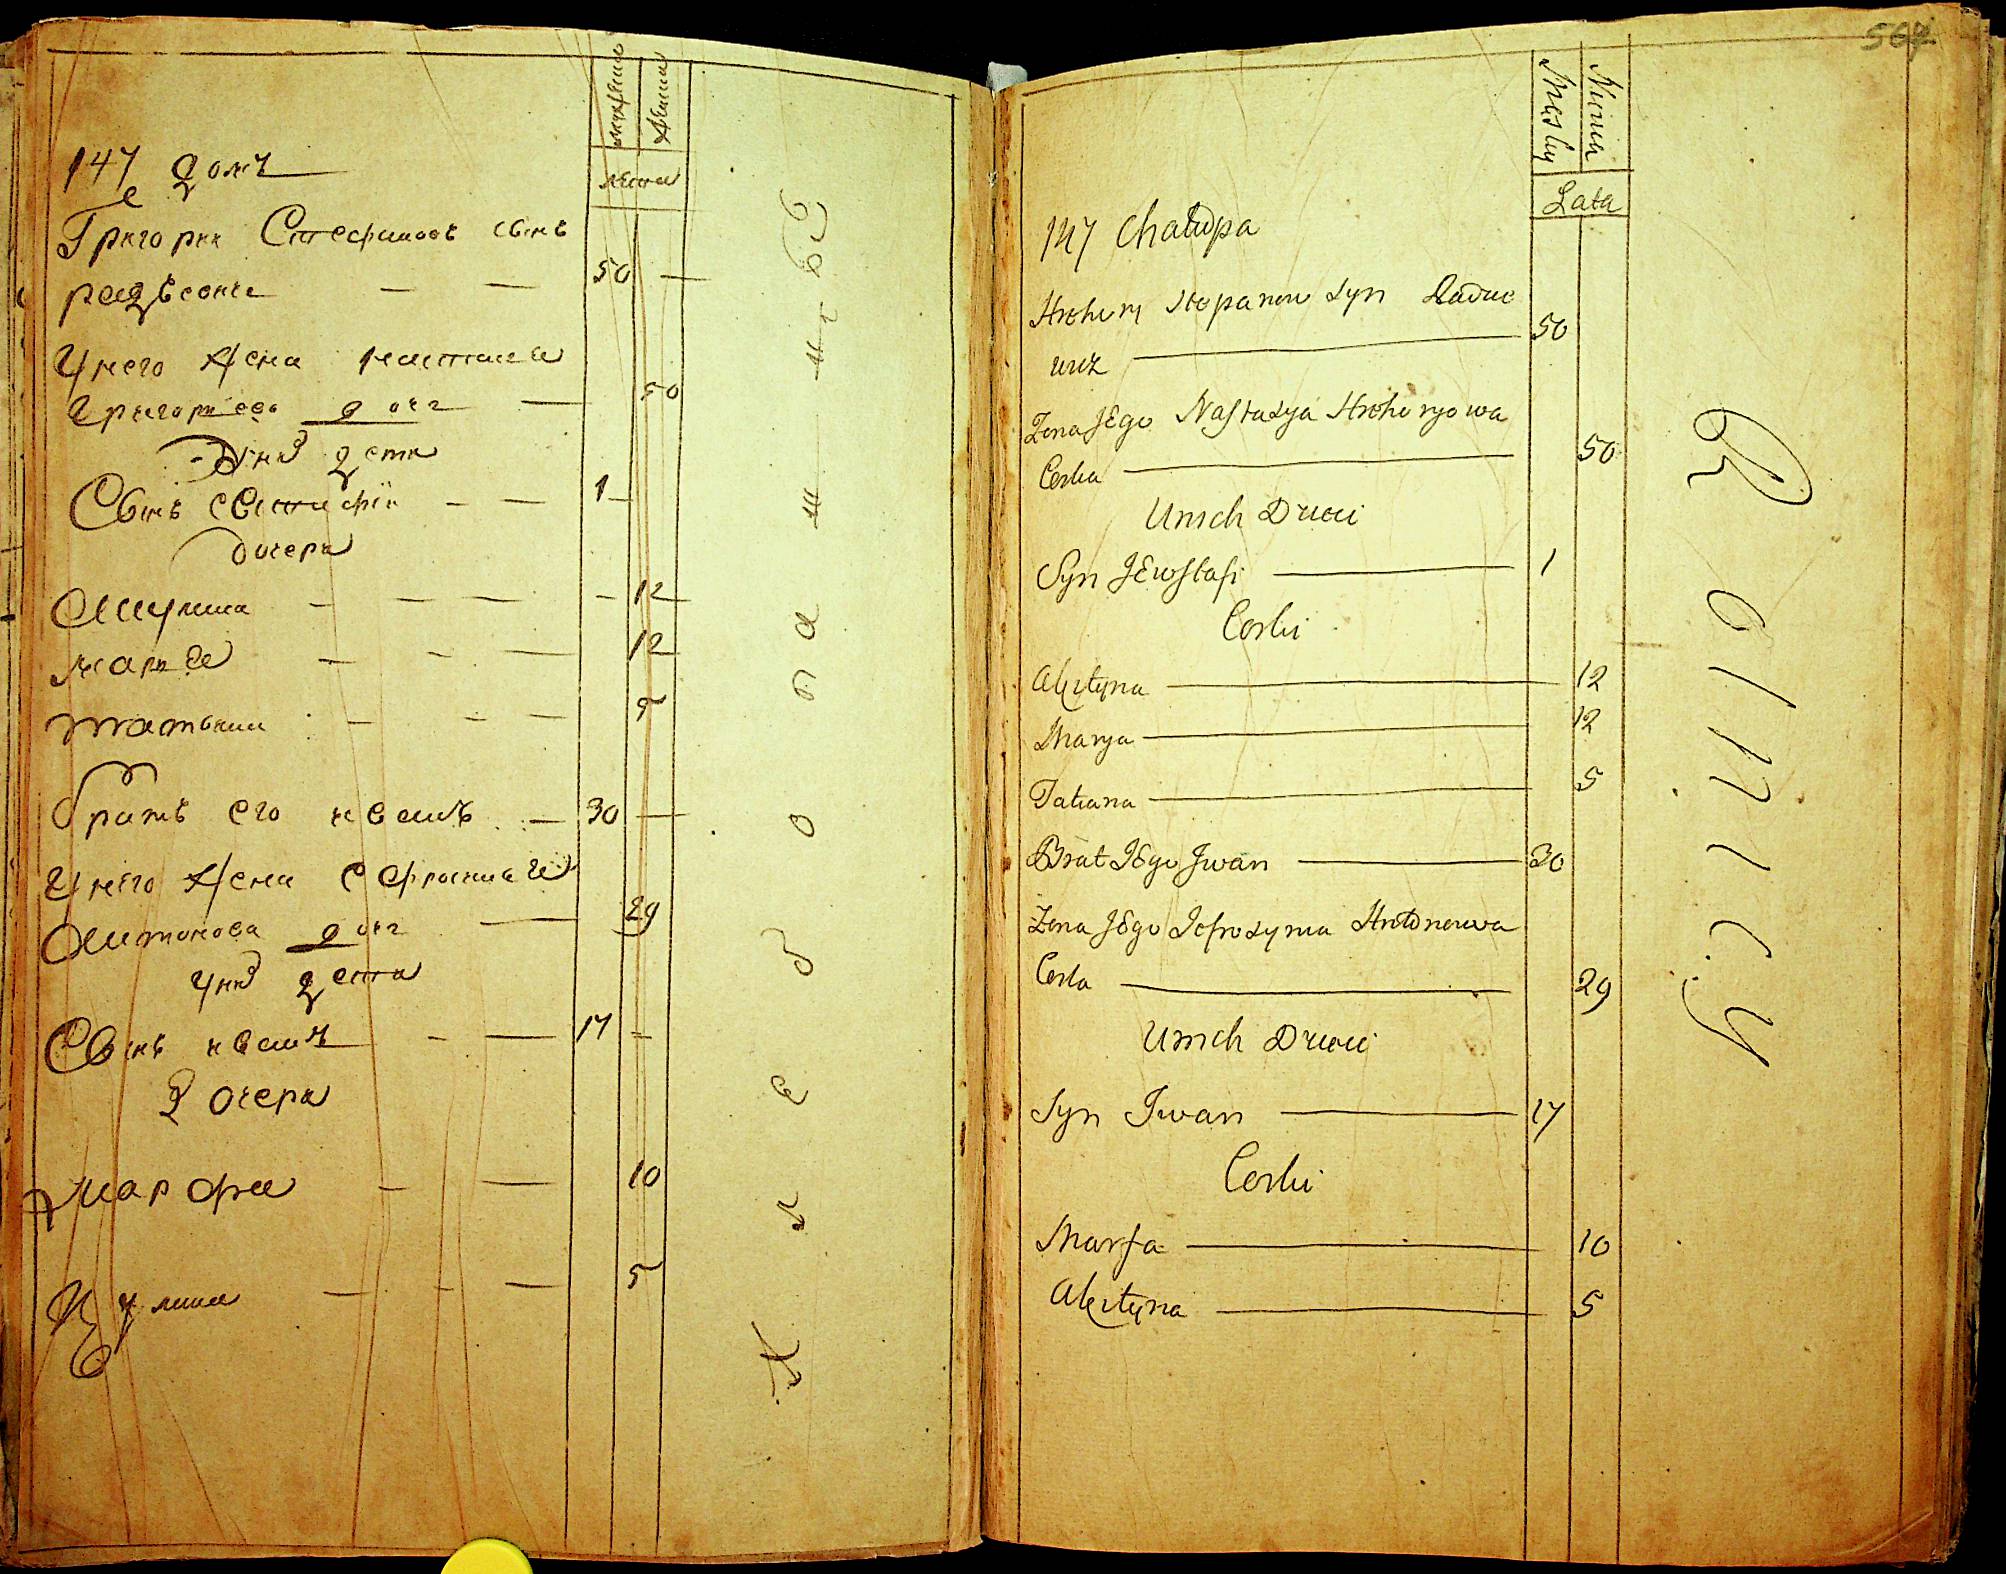 мужеска
женска
лета
147 домъ
е
Григории Стефановъ сынъ
50
У него жена настасия
григориева дочг
50
У них дети
Сынъ евстафiи
1
дочери
Акулина
12
мария
12
татьяна
5
братъ его иванъ
30
У него жена ефросиния
Антонова дочг
29
У них дети
Сынъ иванъ
17
дочери
марфа
10
Акулина
5
Хлебопашцы
507
Męsky
Niewia
Lata
147 Chałupa
Hrehory Stepanow Syn Radue
wicz
50
Zona JEgo Nastazya Hrehoryowa
Corka
50
U nich Dzieci
Syn JEwstafi
1
Corki
Akulyna
12
Marya
12
Tatiana
5
Brat JEgo Jwan
30
Zona JEgo Jefrozynia Antonowa
Corka
29
U nich Dzieci
Syn Jwan
17
Corki
Marfa
10
Akulyna
5
Rolnicy